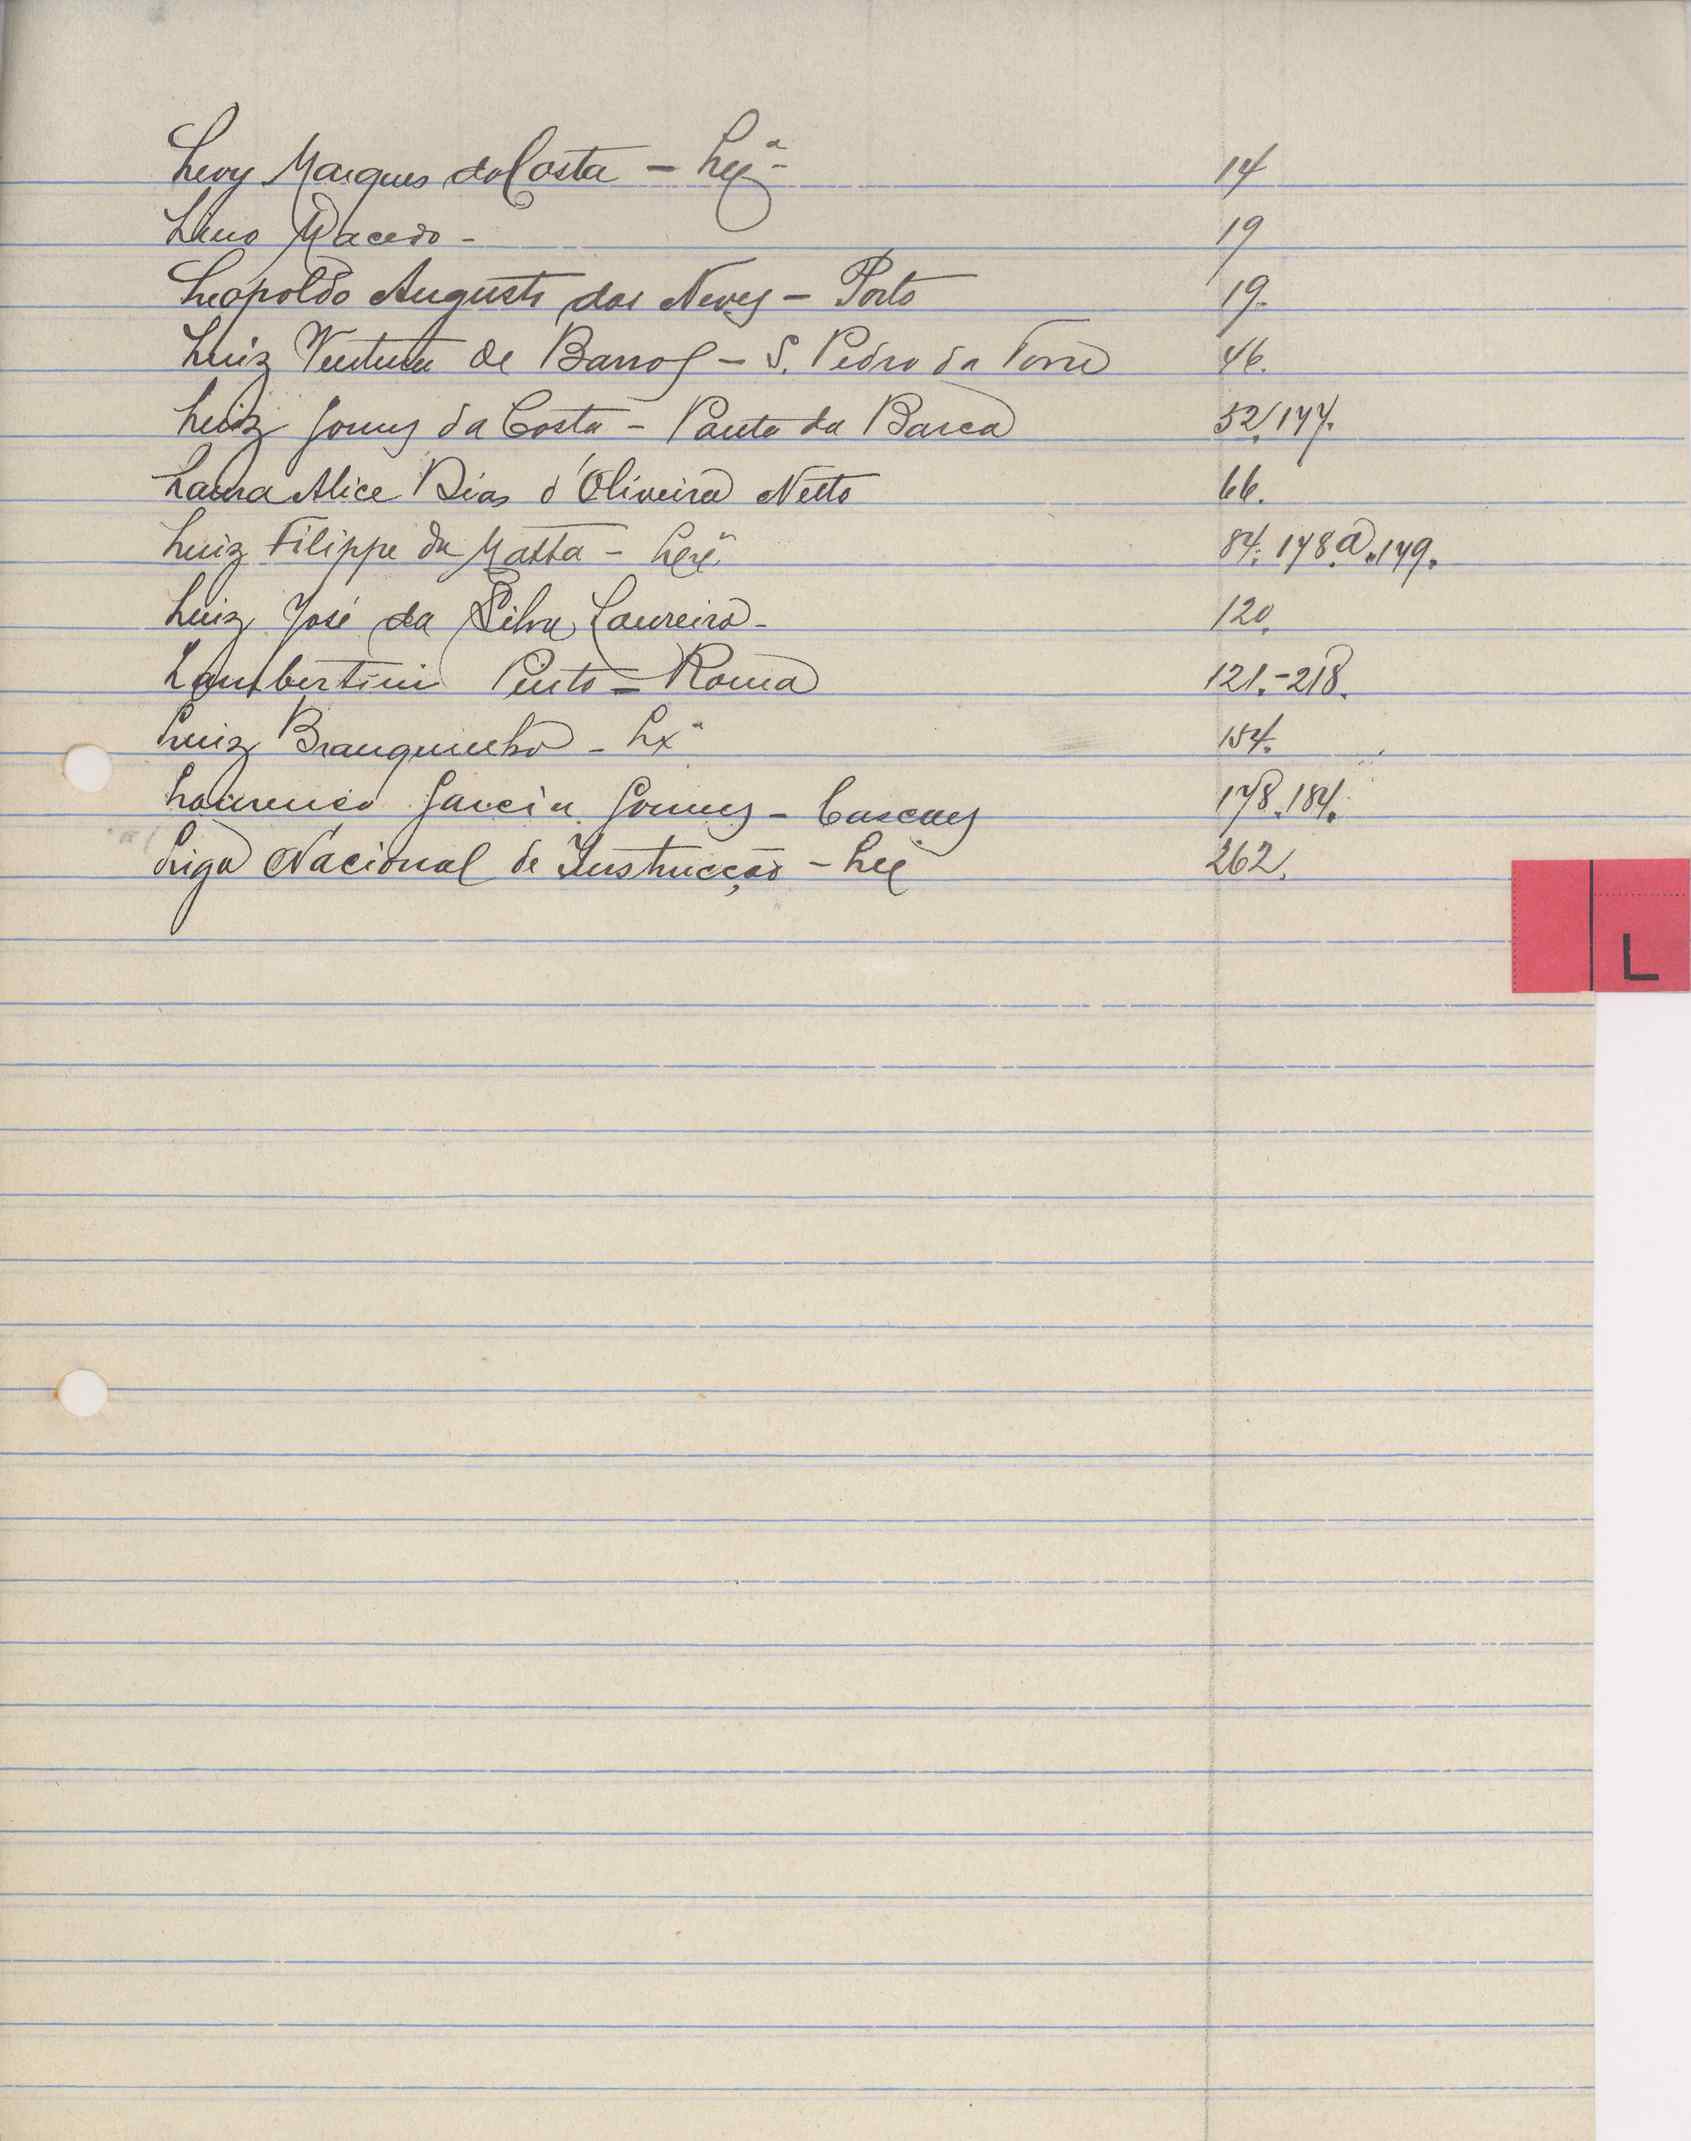 Levy Marques da Costa - Lxª - 14
Lino Macedo - 19
Leopoldo Augusto das Neves - Porto 19.
Luiz Ventura de Barros - S. Pedro da Torre 46.
Luiz Gomes da Costa - Ponte da Barca 52. 177.
Laura Alice Dias d'Oliveira Netto 66.
Luiz Filippe da Matta - Lxª 84. 178.a. 179.
Luiz José da Silva Loureiro - 120.
Lambertini Pinto - Roma 121. - 218.
Luiz Branquinho - Lxª 154.
Lourenço Garcia Gomes - Cascaes 178. 184.
Liga Nacional de Instrucção - Lx 262.
L